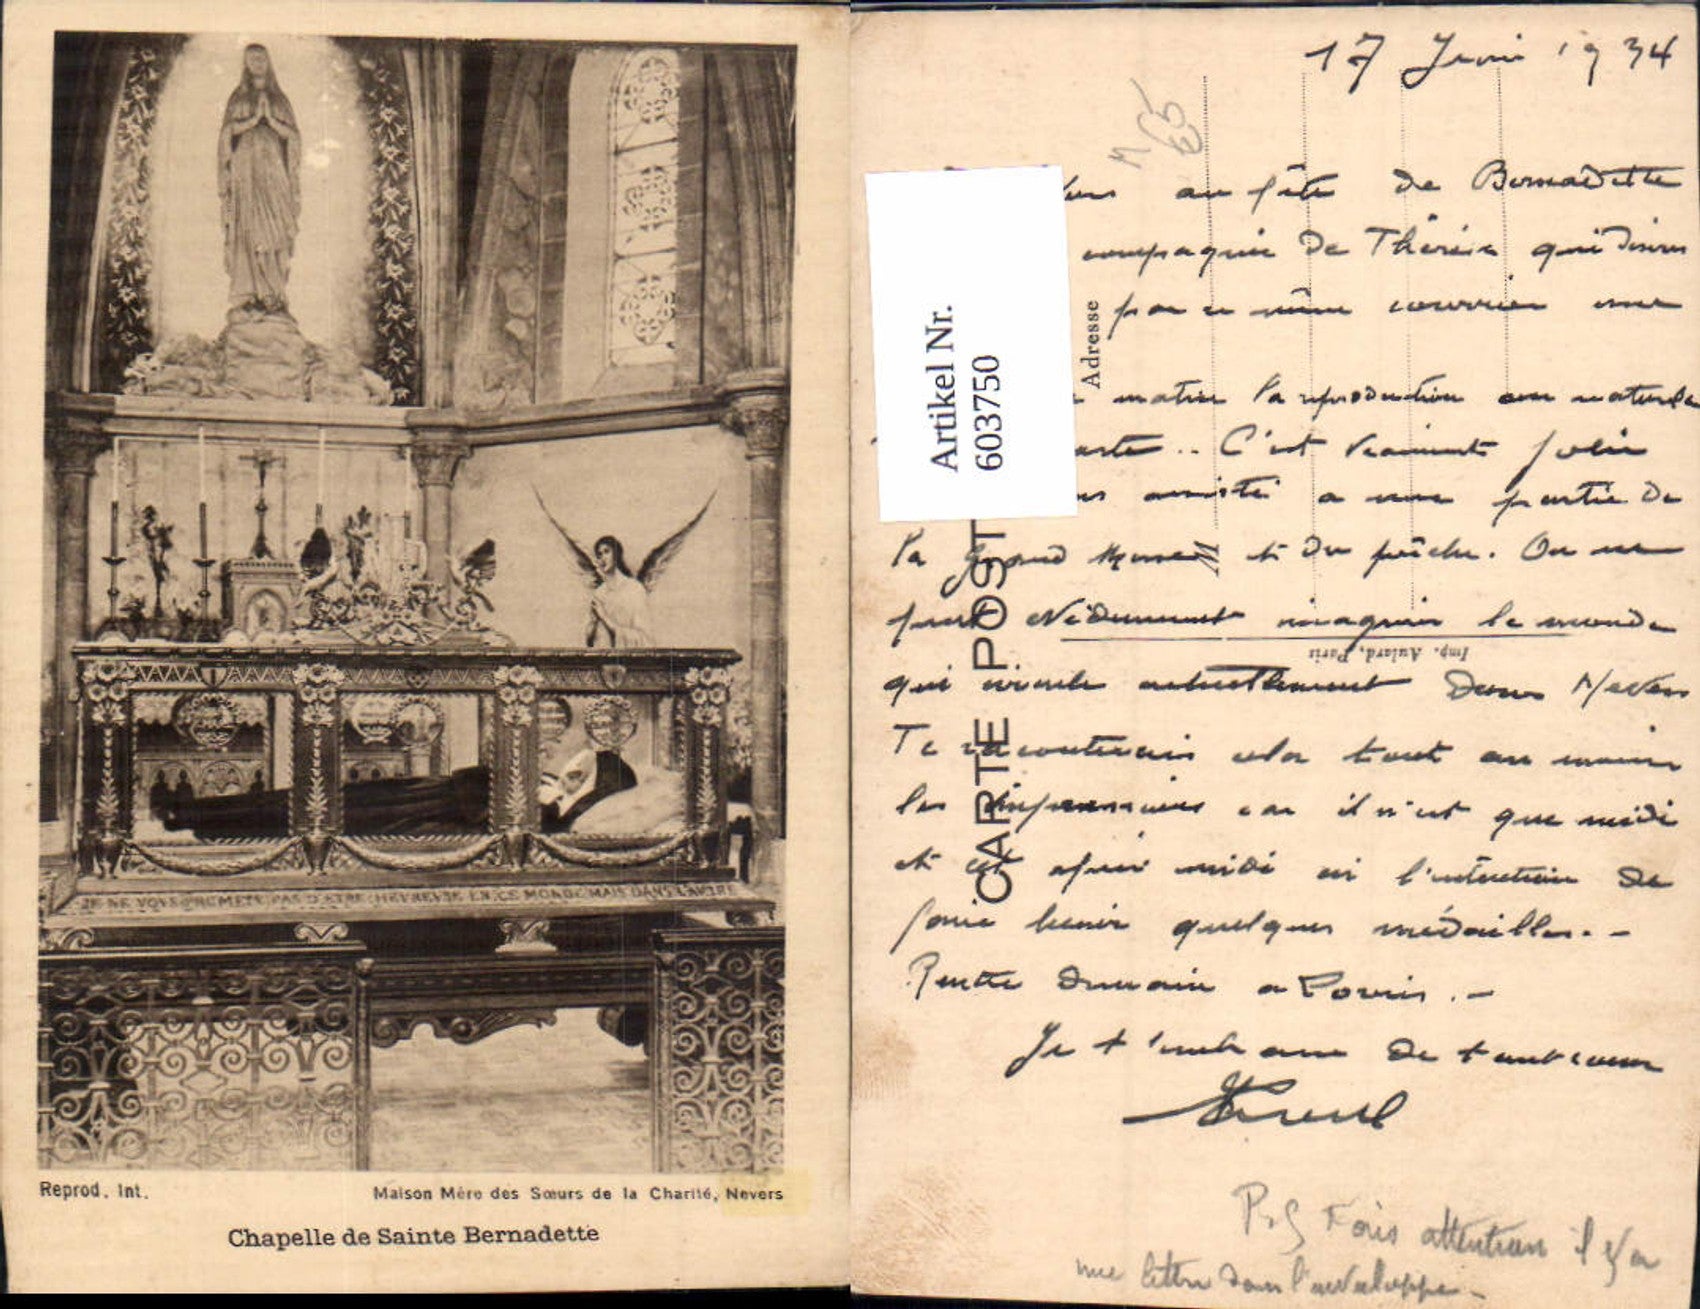 JE NE VOUS PROMETS PAS D'ETRE HEUREUSE EN CE MONDE MAIS DANS L'AUTRE
Reprod. Int.
Maison Mère des Sœurs de la Charité, Nevers
Chapelle de Sainte Bernadette
17 Juin 1934
au fête de Bernadette
compagnie de Thérèse qui
par ce même courrier une
matin la reproduction au naturelle
carte.. C'est vraiment jolie
assisté a une partie de
la grand Messe et du prêche. On ne
peut évidemment imaginer le monde
qui circule actuellement dans Nevers
Te raconterais cela tout au moins
les impressions car il n'est que midi
et cet après midi ai l'intention de
faire bénir quelques médailles. -
Rentre demain a Paris. -
Je t'embrasse de tout cœur
P.S Fais attention il y a
une lettre dans l'enveloppe -
CARTE POST
Adresse
Imp. Aulard, Paris
Artikel Nr.
603750